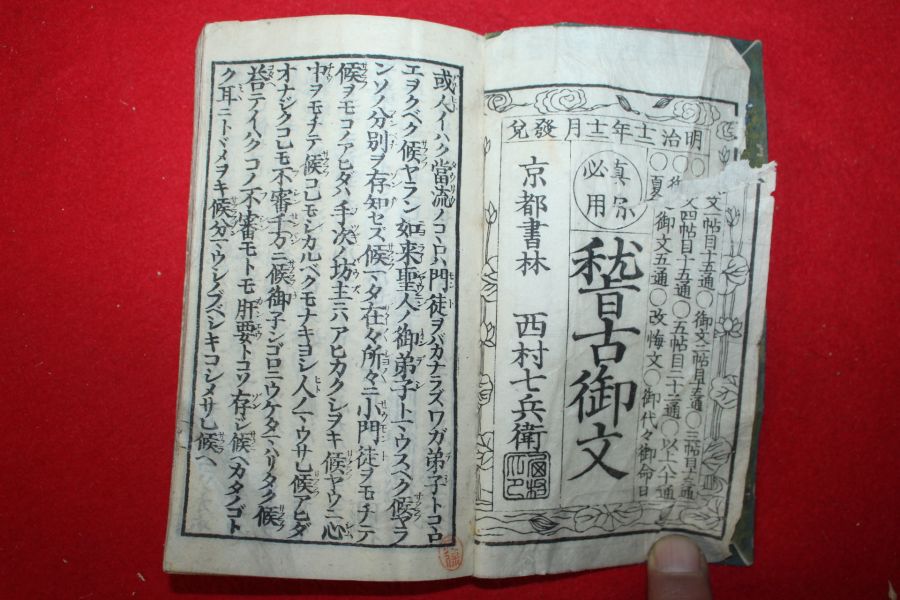 明治十二年十二月發兌
文一帖目十五通〇御文二帖目十五通〇三帖目十三通
文四帖目十五通〇五帖目二十二通〇以上八十通
夏御文五通〇改悔文〇御代々御命日
真宗必用
稽古御文
京都書林 西村七兵衛
或人イハク當流ノコヽロハ門徒ヲバカナラズワガ弟子トコヽロ
エヲクベク候ヤラン如来聖人ノ御弟子トマウスベク候ヤラ
ンソノ分別ヲ存知セズ候マタ在々所々ニ小門徒ヲモチテ
候ヲモコノアヒダハ手次ノ坊主ニハアヒカクシヲキ候ヤウニ心
中ヲモチテ候コレモシカルベクモナキヨシ人ノマウサレ候アヒダ
オナジクコレモ不審千万ニ候御子ンゴロニウケタマハリタク候
荅テイハクコノ不審モトモ肝要トコソ存シ候ヘカタノゴト
ク耳ニトヾメヲキ候分マウシノブベシキコシメサレ候ヘ